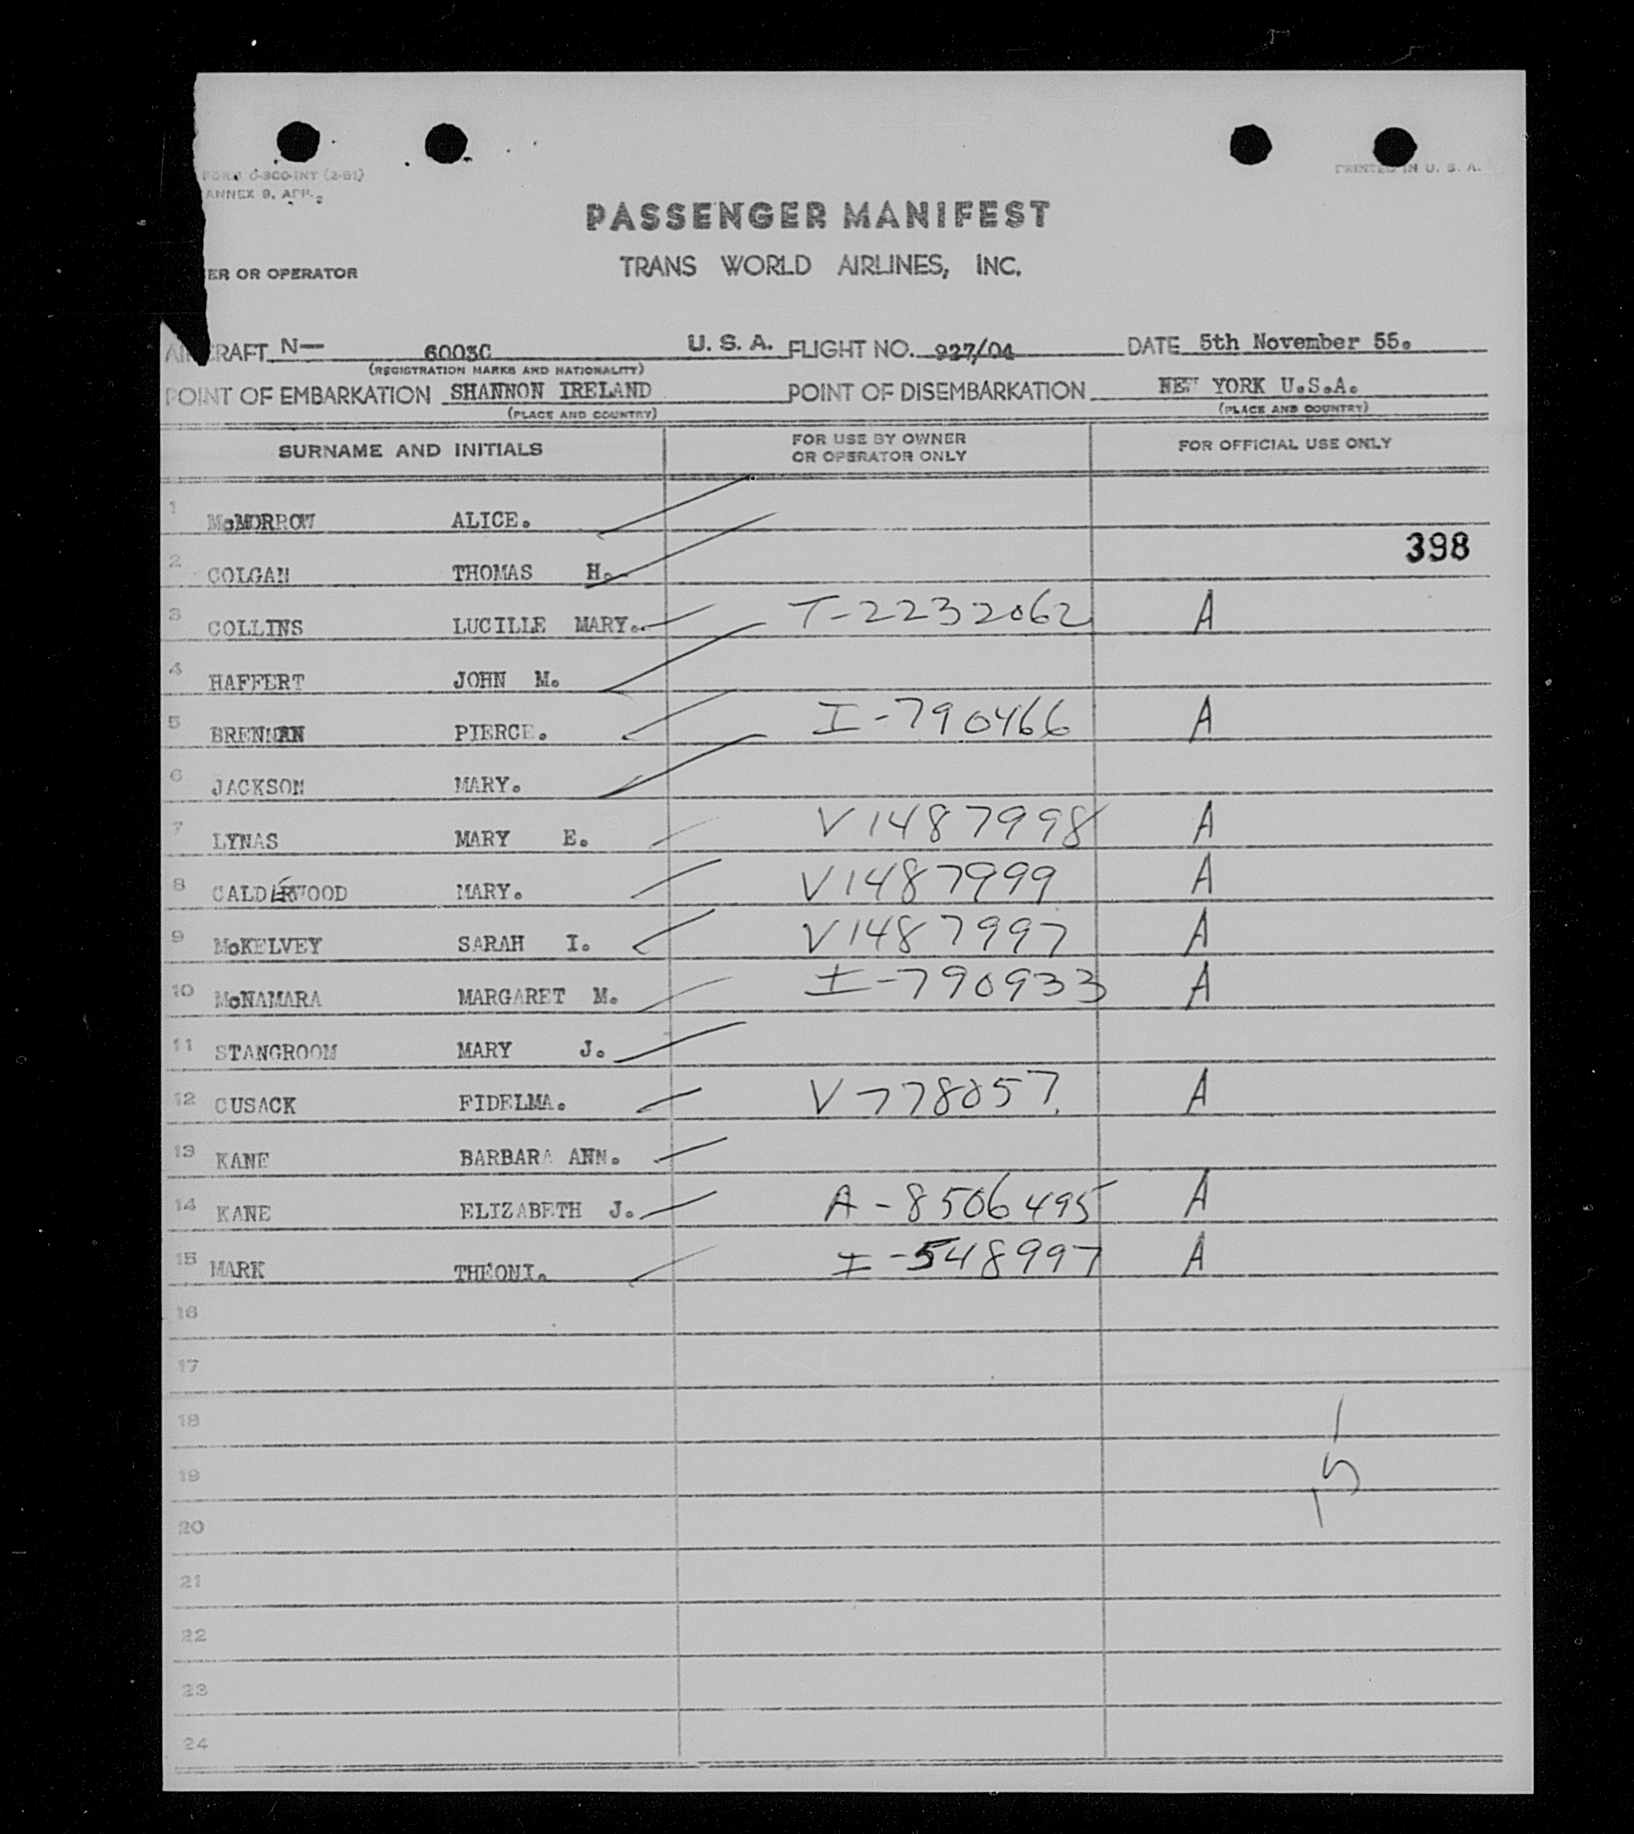 FORM C-300-INT (2-51) PRINTED IN U. S. A.
ANNEX 9, APP. 2
PASSENGER MANIFEST
ER OR OPERATOR TRANS WORLD AIRLINES, INC.
AIRCRAFT N— 6003C U. S. A. FLIGHT NO. 927/04 DATE 5th November 55.
(REGISTRATION MARKS AND NATIONALITY)
POINT OF EMBARKATION SHANNON IRELAND POINT OF DISEMBARKATION NEW YORK U.S.A.
(PLACE AND COUNTRY) (PLACE AND COUNTRY)
SURNAME AND INITIALS FOR USE BY OWNER OR OPERATOR ONLY FOR OFFICIAL USE ONLY
1 McMORROW ALICE.
398
2 COLGAN THOMAS H.
3 COLLINS LUCILLE MARY. T-2232062 A
4 HAFFERT JOHN M.
5 BRENNAN PIERCE. I-790466 A
6 JACKSON MARY.
7 LYNAS MARY E. V1487998 A
8 CALDERWOOD MARY. V1487999 A
9 McKELVEY SARAH I. V1487997 A
10 McNAMARA MARGARET M. I-790933 A
11 STANGROOM MARY J.
12 CUSACK FIDELMA. V778057 A
13 KANE BARBARA ANN.
14 KANE ELIZABETH J. A-8506495 A
15 MARK THEONI. I-548997 A
16
17
18
19
20
21
22
23
24